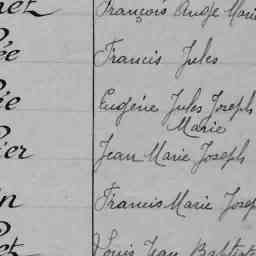 net François Ange Marie
ée Francis Jules
ée Eugène Jules Joseph
Marie
ier Jean Marie Joseph
n Francis Marie Josep
et Louis Jean Baptist